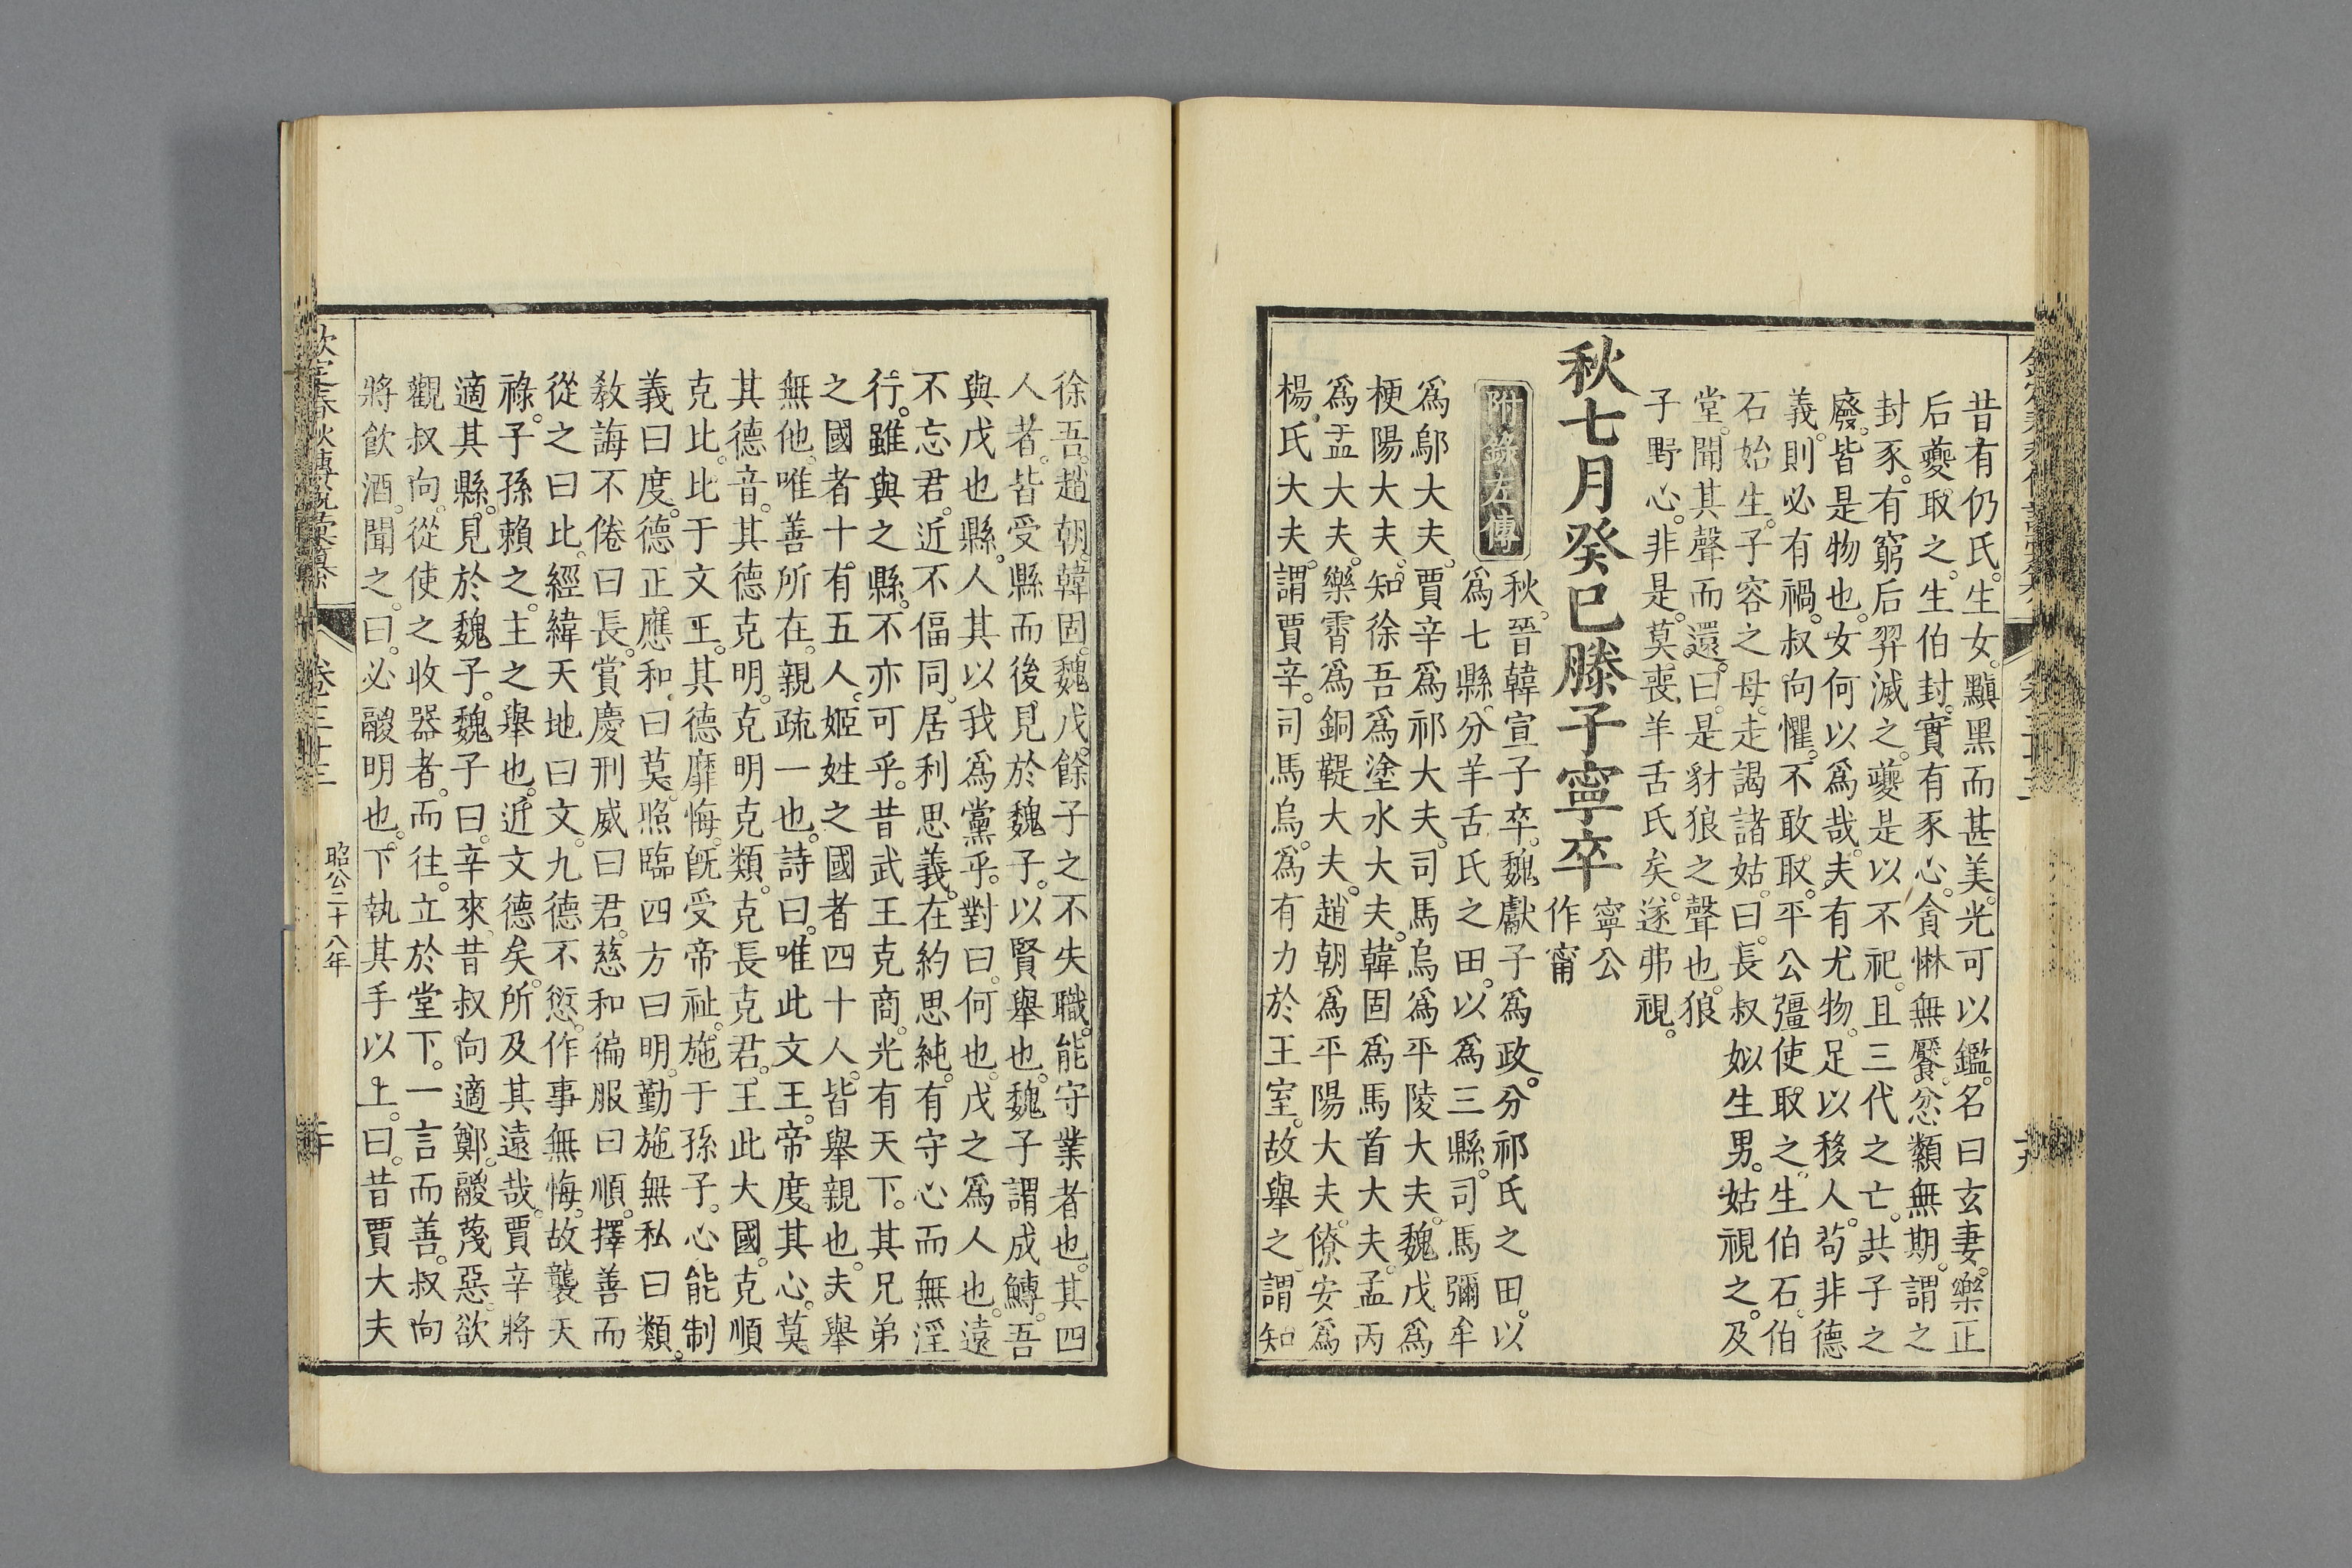 昔有仍氏。生女。黰黑而甚美。光可以鑑。名曰玄妻。樂正
后夔取之。生伯封。實有豕心。貪惏無饜。忿纇無期。謂之
封豕。有窮后羿滅之。夔是以不祀。且三代之亡。共子之
廢。皆是物也。女何以爲哉。夫有尤物。足以移人。苟非德
義。則必有禍。叔向懼。不敢取。平公彊使取之。生伯石。伯
石始生。子容之母。走謁諸姑。曰。長叔姒生男。姑視之。及
堂。聞其聲而還。曰。是豺狼之聲也。狼
子野心。非是。莫喪羊舌氏矣。遂弗視。
秋七月癸巳滕子寧卒
寧公
作甯
附錄左傳
秋。晉韓宣子卒。魏獻子爲政。分祁氏之田。以
爲七縣。分羊舌氏之田。以爲三縣。司馬彌牟
爲鄔大夫。賈辛爲祁大夫。司馬烏爲平陵大夫。魏戊爲
梗陽大夫。知徐吾爲塗水大夫。韓固爲馬首大夫。孟丙
爲盂大夫。樂霄爲銅鞮大夫。趙朝爲平陽大夫。僚安爲
楊氏大夫。謂賈辛。司馬烏。爲有力於王室。故舉之。謂知
徐吾。趙朝。韓固。魏戊。餘子之不失職。能守業者也。其四
人者。皆受縣而後見於魏子。以賢舉也。魏子謂成鱄。吾
與戊也縣。人其以我爲黨乎。對曰。何也。戊之爲人也。遠
不忘君。近不偪同。居利思義。在約思純。有守心而無淫
行。雖與之縣。不亦可乎。昔武王克商。光有天下。其兄弟
之國者十有五人。姬姓之國者四十人。皆舉親也。夫舉
無他。唯善所在。親疏一也。詩曰。唯此文王。帝度其心。莫
其德音。其德克明。克明克類。克長克君。王此大國。克順
克比。比于文王。其德靡悔。旣受帝祉。施于孫子。心能制
義曰度。德正應和。曰莫。照臨四方曰明。勤施無私曰類。
敎誨不倦曰長。賞慶刑威曰君。慈和徧服曰順。擇善而
從之曰比。經緯天地曰文。九德不愆。作事無悔。故襲天
祿。子孫賴之。主之舉也。近文德矣。所及其遠哉。賈辛將
適其縣。見於魏子。魏子曰。辛來。昔叔向適鄭。鬷蔑惡。欲
觀叔向。從使之收器者。而往。立於堂下。一言而善。叔向
將飮酒。聞之。曰。必鬷明也。下執其手以上。曰。昔賈大夫
昭公二十八年